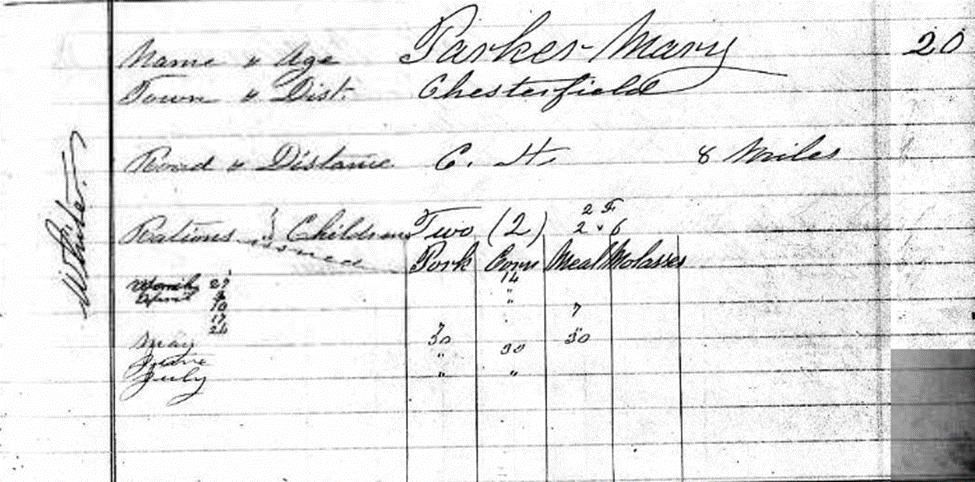 Name & Age Parker Mary 20
Town & Dist. Chesterfield
Road & Distance C. H. 8 Miles
White
2 F
Rations & Children Two (2) 2 & 6
issued Pork Corn Meal Molasses
March 27 14
April 3 "
10 7
17
24 7
May 30 30
June " 30
July " "